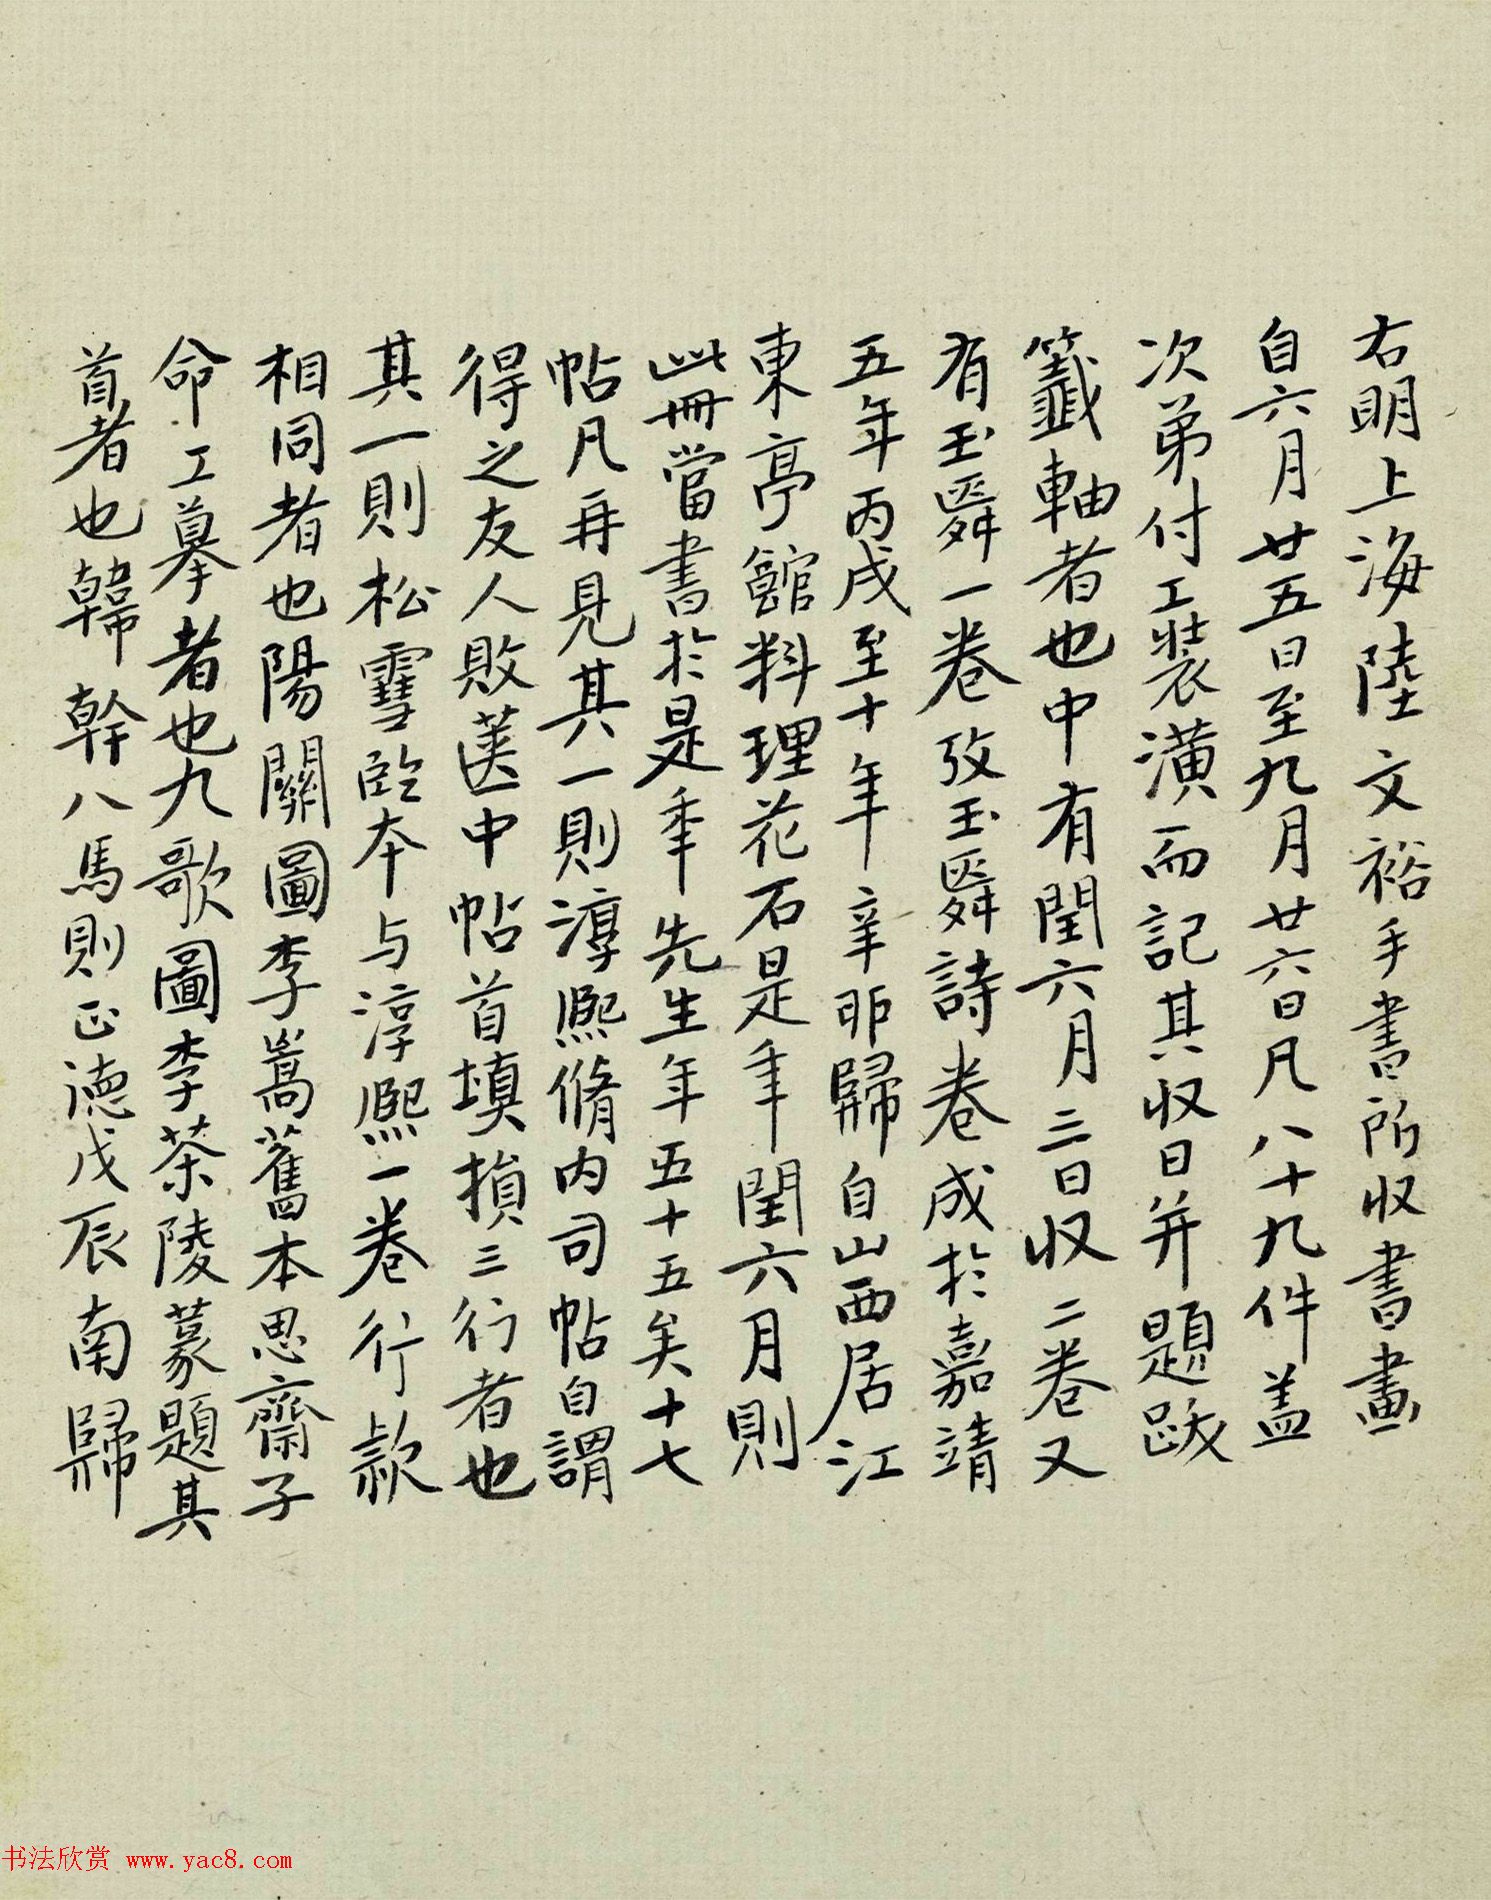 右明上海陸文裕手書所收書畫
自六月廿五日至九月廿六日凡八十九件盖
次弟付工裝潢而記其收日并題跋
籤軸者也中有閏六月三日收二卷又
有玉舜一卷攷玉舜詩卷成於嘉靖
五年丙戌至十年辛卯歸自山西居江
東亭館料理花石是年閏六月則
此冊當書於是年先生年五十五矣十七
帖凡再見其一則淳熙脩内司帖自謂
得之友人敗篋中帖首填損三行者也
其一則松雪臨本与淳熙一卷行款
相同者也陽關圖李嵩舊本思齋子
命工摹者也九歌圖李茶陵篆題其
首者也韓幹八馬則正德戊辰南歸
书法欣赏 www.yac8.com